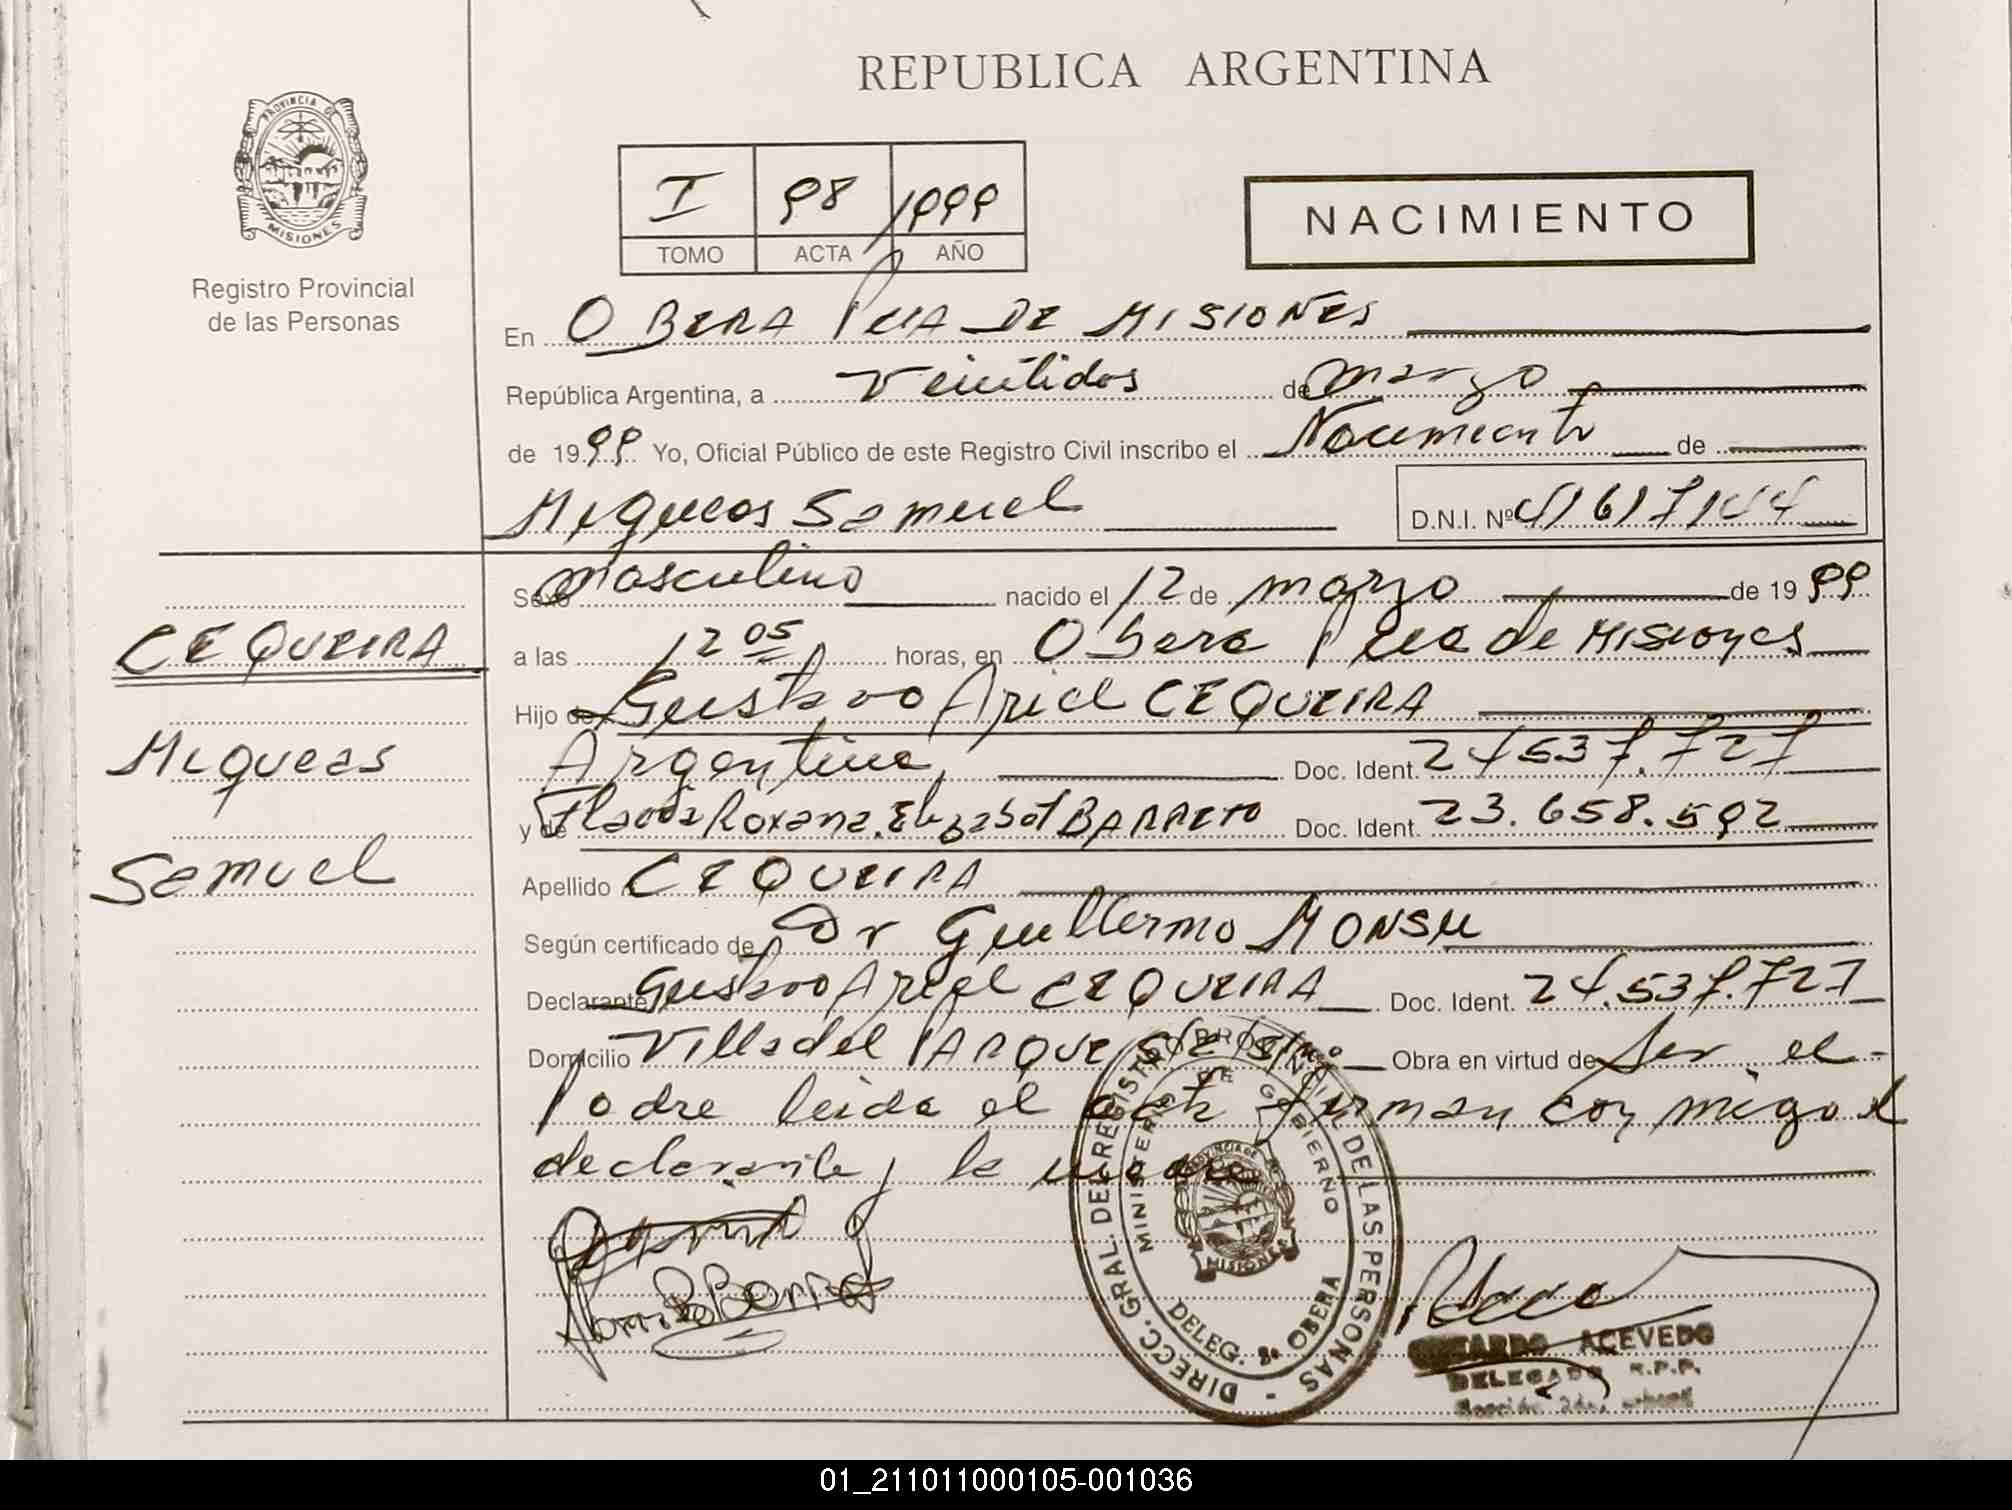 REPUBLICA ARGENTINA
PROVINCIA DE
MISIONES
Registro Provincial
de las Personas
I 98 1999
TOMO ACTA AÑO
NACIMIENTO
En OBERA Pcia DE MISIONES
República Argentina, a Veintidos de marzo
de 1999 Yo, Oficial Público de este Registro Civil inscribo el Nacimiento de
Miqueas Samuel D.N.I. Nº
Sexo masculino nacido el 12 de marzo de 1999
CEQUEIRA
a las 12 05 horas, en Obera Pcia de Misiones
Hijo de Gustavo Ariel CEQUEIRA
Miqueas
Argentina Doc. Ident. 24537.727
y de Flavia Roxana Elizabet BARRETO Doc. Ident. 23.658.592
Samuel
Apellido CEQUEIRA
Según certificado de Dr Guillermo MONSU
Declarante Gustavo Ariel CEQUEIRA Doc. Ident. 24.537.727
Domicilio Villa del PARQUE Obra en virtud de ser el
Padre leida el acta firman conmigo el
declarante y la madre
DIRECC. GRAL. DEL REGISTRO PROVINCIAL DE LAS PERSONAS
MINISTERIO DE GOBIERNO
PROVINCIA DE
MISIONES
DELEG. OBERA
ACEVEDO
DELEGADO R.P.P.
01_211011000105-001036